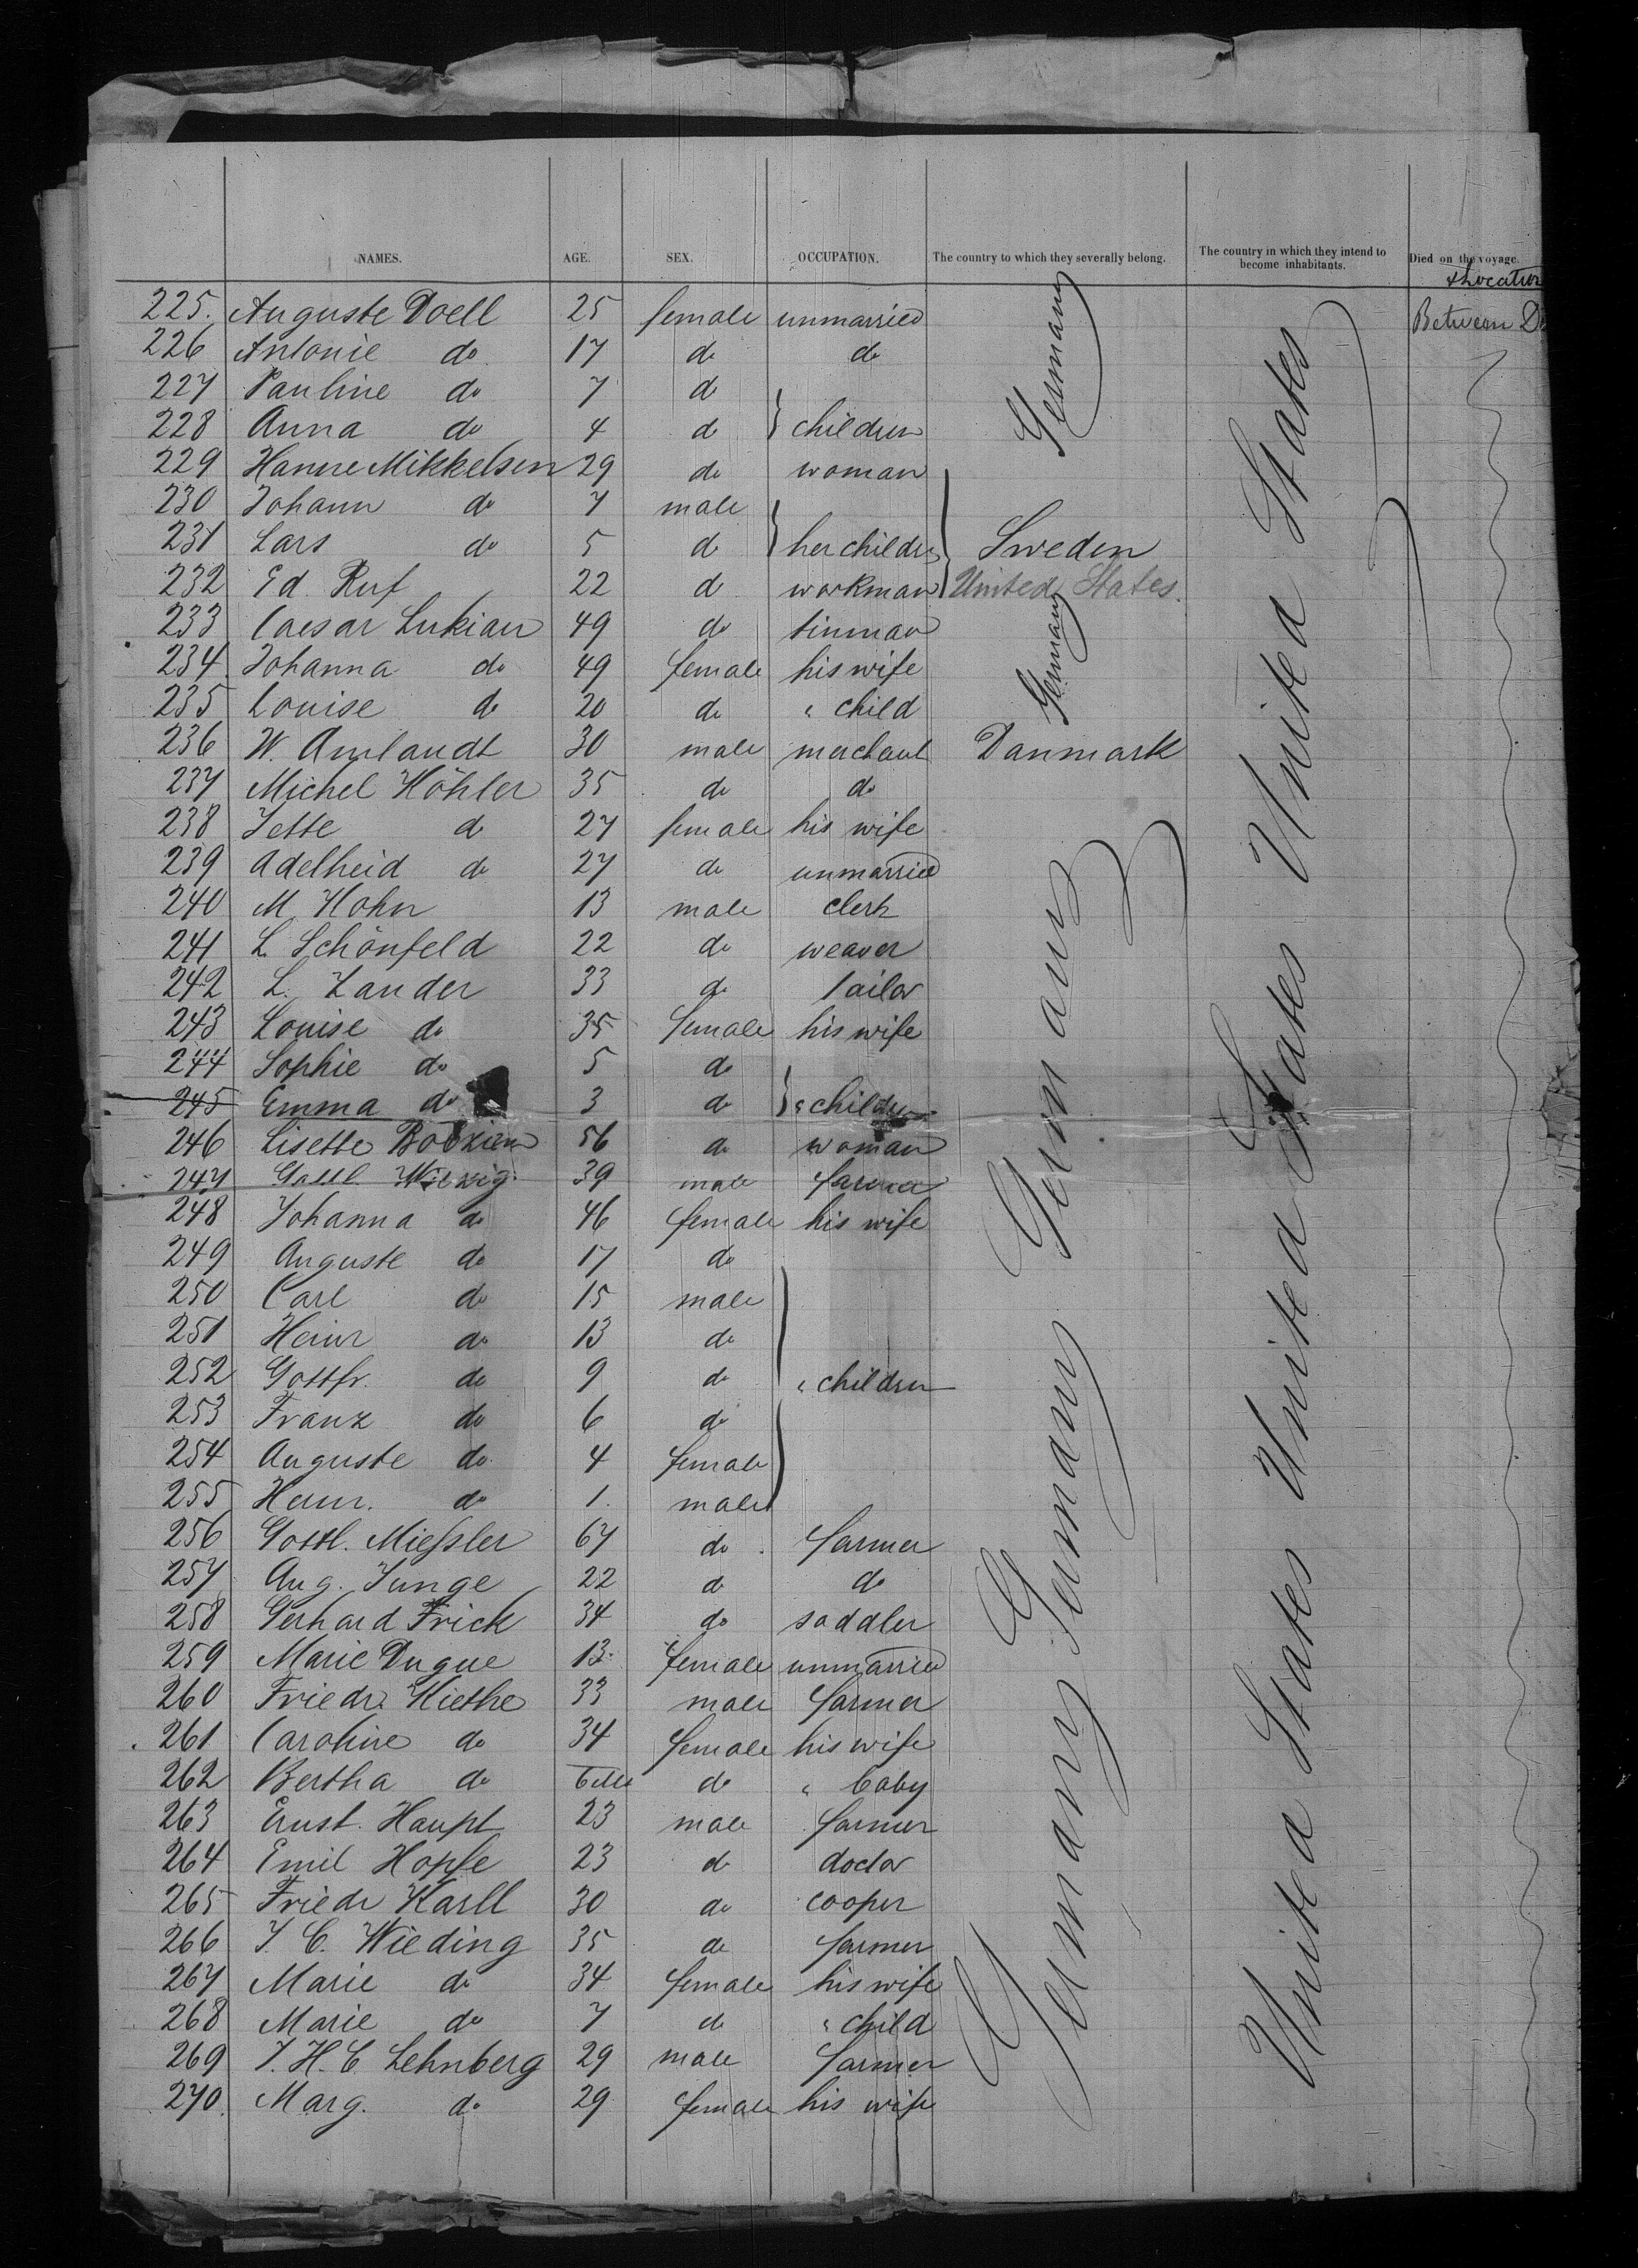 NAMES. AGE. SEX. OCCUPATION. The country to which they severally belong. The country in which they intend to become inhabitants. Died on the voyage.
& Location
225. Auguste Doell 25 female unmarried Germany United States Between D
226 Antonie do 17 do do
227 Pauline do 7 do
228 Anna do 4 do } children
229 Hanne Mikkelsen 29 do woman
230 Johann do 7 male
231 Lars do 5 do } her childrn Sweden
232 Ed. Ruf 22 do workman United States.
233 Caesar Lukian 49 do tinman Germany
234 Johanna do 49 female his wife
235 Louise do 20 do " child
236 W. Amlandt 30 male merchant Danmark
237 Michel Höhler 35 do do
238 Jette do 27 female his wife
239 Adelheid do 27 do unmarried
240 M. Hohn 13 male clerk
241 L. Schönfeld 22 do weaver Germany United States
242 L. Zander 33 do tailor
243 Louise do 35 female his wife
244 Sophie do 5 do
245 Emma do 3 do } " children
246 Lisette Bobzien 56 do woman
247 Gottl. 39 male farmer
248 Johanna do 46 female his wife
249 Auguste do 17 do
250 Carl do 15 male
251 Heinr do 13 do
252 Gottfr. do 9 do " children
253 Franz do 6 do
254 Auguste do 4 female
255 Heinr. do 1. male
256 Gottl. Mießler 67 do farmer Germany United States
257 Aug. Junge 22 do do
258 Gerhard Frick 34 do saddler
259 Marie Dugue 13. female unmarried
260 Friedr. Kiethe 33 male farmer
261 Caroline do 34 female his wife
262 Bertha do do " baby
263 Ernst Haupt 23 male farmer
264 Emil Hopfe 23 do doctor
265 Friedr Karll 30 do cooper
266 J. C. Wieding 35 do farmer Germany United States
267 Marie do 34 female his wife
268 Marie do 7 do " child
269 J. H. C. Lehnberg 29 male farmer
270. Marg. do 29 female his wife